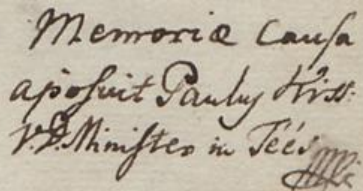 Memoriæ Causa
aposuit Paulus Kiss.
V. D. Minister in Téés